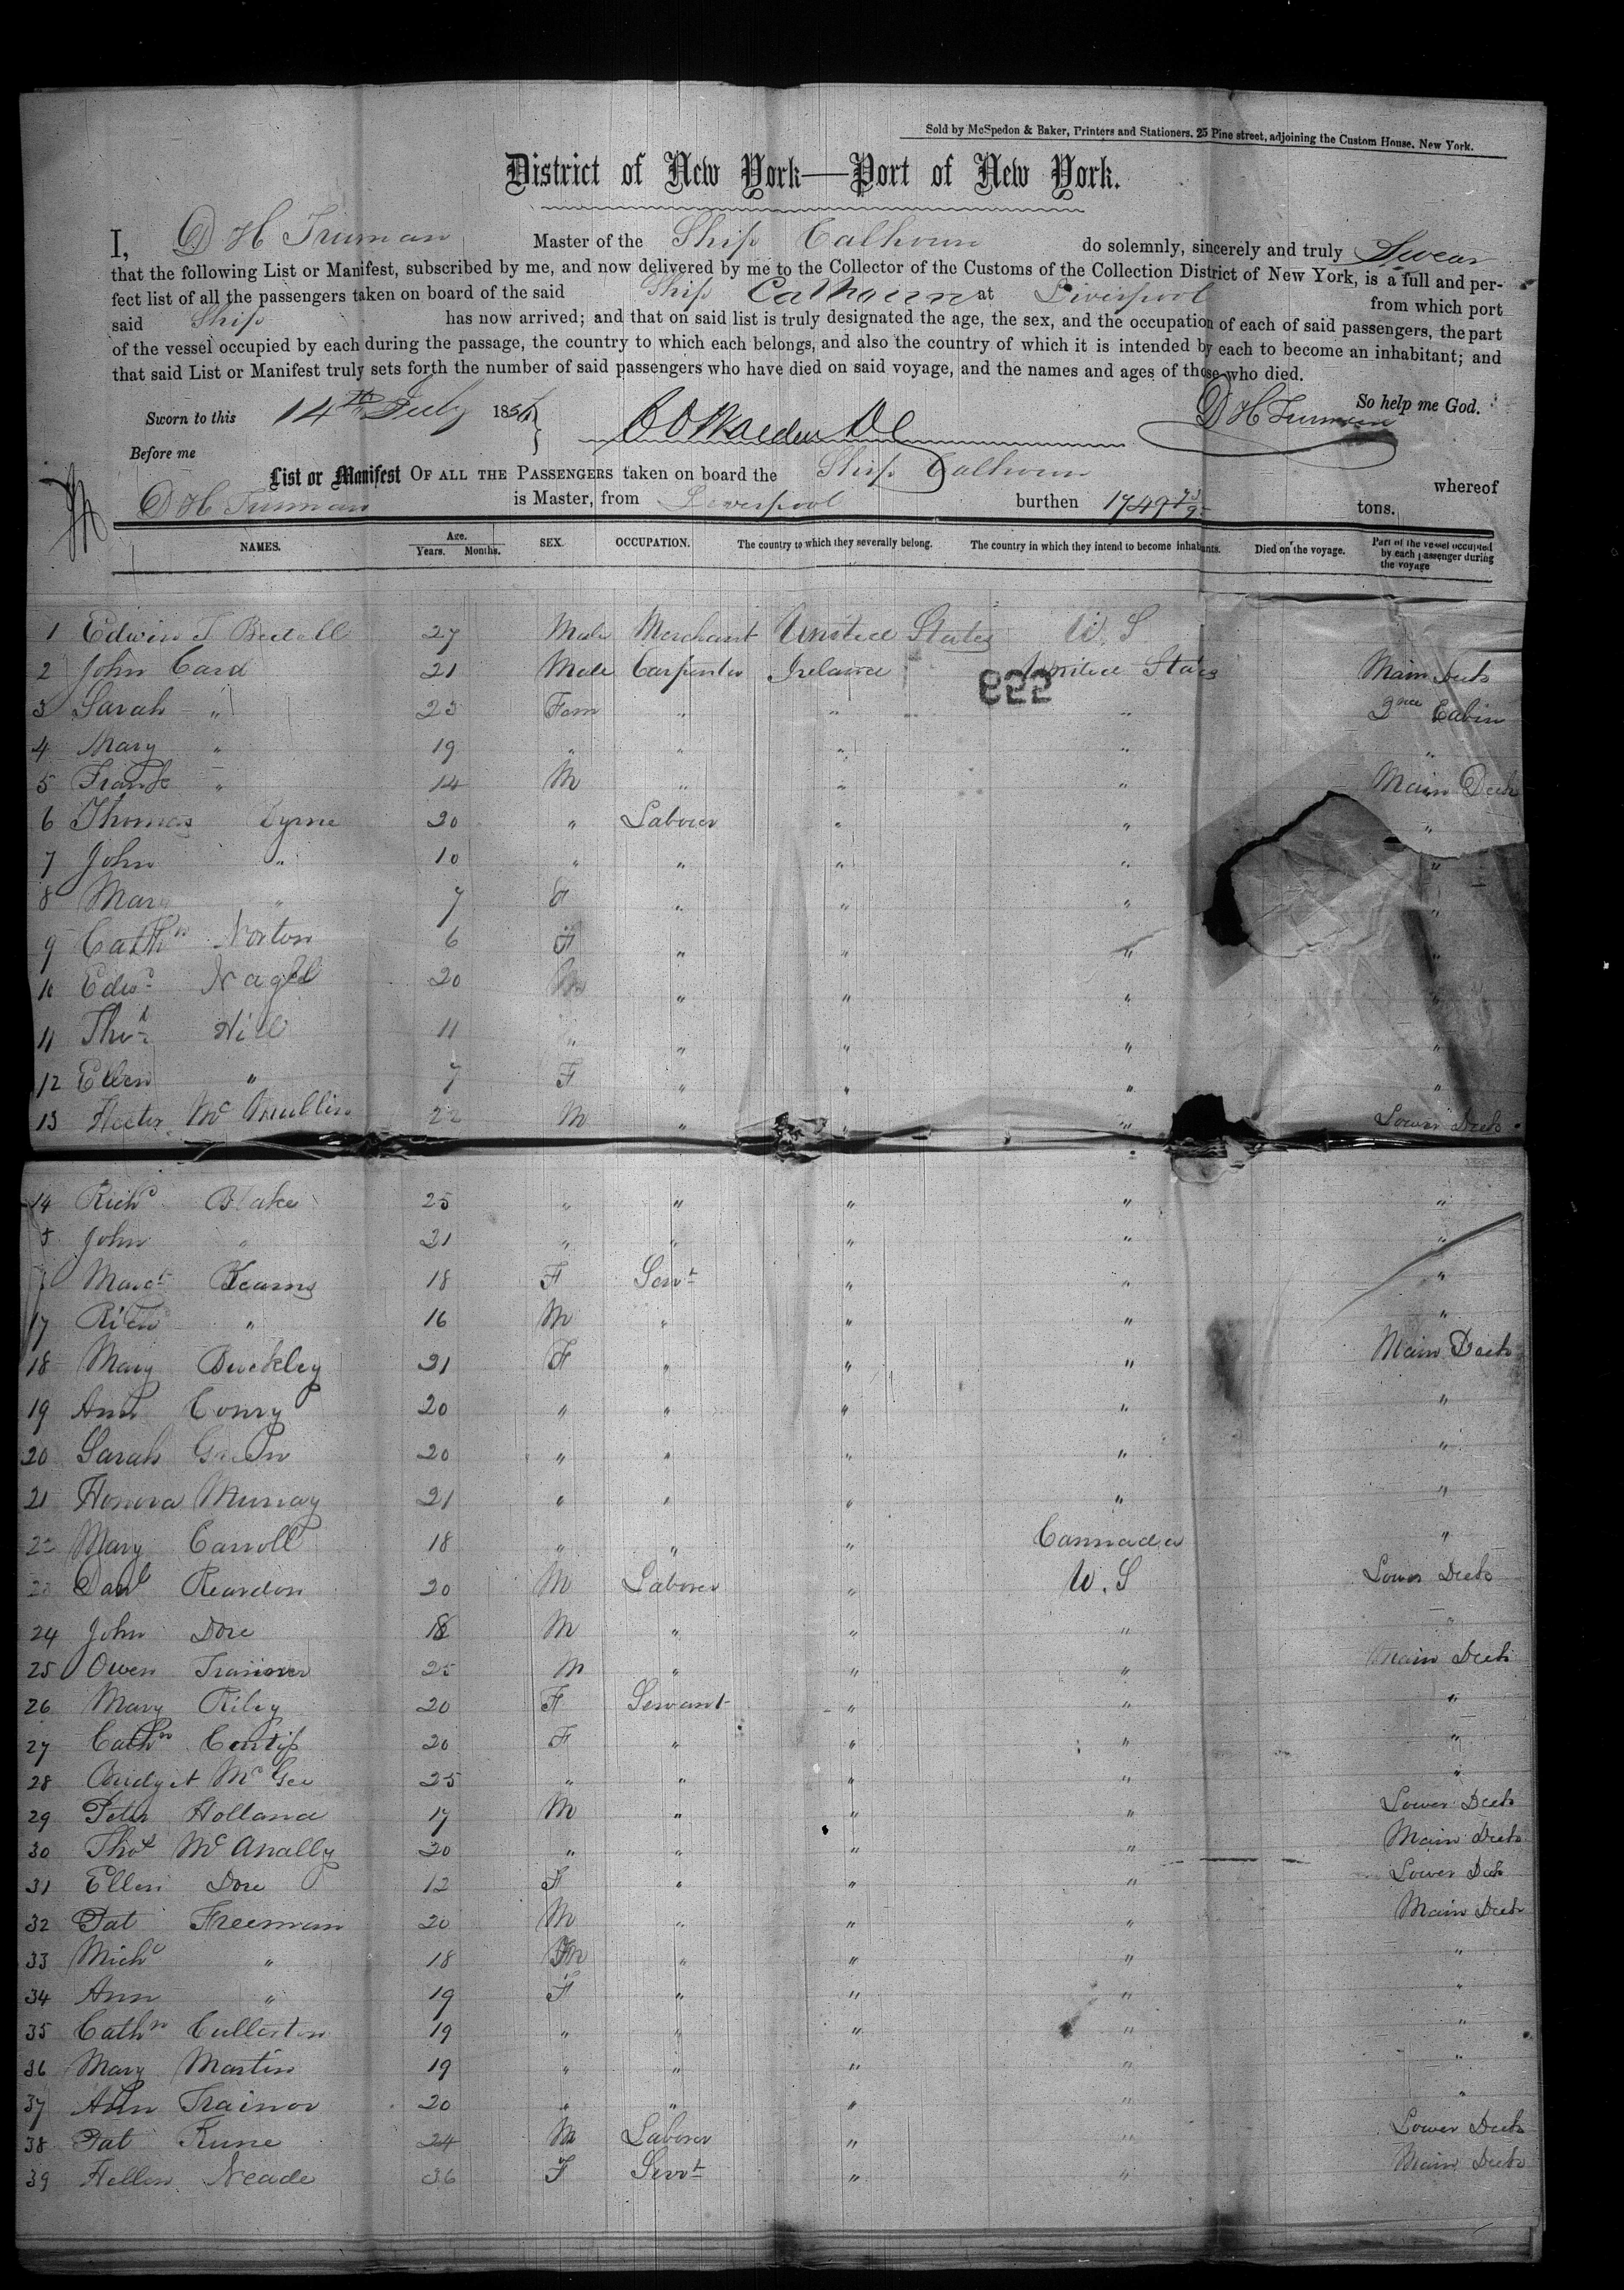 Sold by McSpedon & Baker, Printers and Stationers, 25 Pine street, adjoining the Custom House, New York.
District of New York—Port of New York.
I, D H Truman Master of the Ship Calhoun do solemnly, sincerely and truly Swear
that the following List or Manifest, subscribed by me, and now delivered by me to the Collector of the Customs of the Collection District of New York, is a full and per-
fect list of all the passengers taken on board of the said Ship Calhoun at Liverpool from which port
said Ship has now arrived; and that on said list is truly designated the age, the sex, and the occupation of each of said passengers, the part
of the vessel occupied by each during the passage, the country to which each belongs, and also the country of which it is intended by each to become an inhabitant; and
that said List or Manifest truly sets forth the number of said passengers who have died on said voyage, and the names and ages of those who died.
So help me God.
Sworn to this 14th July 1856 D H Truman
Before me
List or Manifest OF ALL THE PASSENGERS taken on board the Ship Calhoun whereof
D H Truman is Master, from Liverpool burthen 1749 tons.
NAMES. Age. Years. Months. SEX. OCCUPATION. The country to which they severally belong. The country in which they intend to become inhabitants. Died on the voyage. Part of the vessel occupied by each passenger during the voyage
1 Edwin T 27 Male Merchant United States U. S
2 John Card 21 Male Carpenter Ireland United States Main Deck
822
3 Sarah " 23 Fem " " " 2nd Cabin
4 Mary " 19 " " " " "
5 Frank " 14 M " " " Main Deck
6 Thomas Byrne 20 " Labourer " " "
7 John " 10 " " " " "
8 Mary " 7 F " " " "
9 Cathn Norton 6 F " " " "
10 Edwd Nagle 20 M " " " "
11 Thos Hill 11 " " " " "
12 Ellen " 7 F " " " "
13 Hector McMullin 22 M " " " Lower Deck
14 Richd Blake 25 " " " " "
5 John " 21 " " " " "
Margt Kearns 18 F Servt " " "
17 Richd " 16 M " " " "
18 Mary Buckley 21 F " " " Main Deck
19 Ann Conry 20 " " " " "
20 Sarah 20 " " " " "
21 Honora Murray 21 " " " " "
22 Mary Carroll 18 " " " Cannada "
23 Danl Reardon 20 M Laborer " U. S Lower Deck
24 John Dore 18 M " " " "
25 Owen Trainor 25 M " " " Main Deck
26 Mary Riley 20 F Servant " " "
27 Cathn 20 F " " " "
28 Bridget McGee 25 " " " " "
29 Peter Holland 17 M " " " Lower Deck
30 Thos McAnally 20 " " " " Main Deck
31 Ellen Dore 12 F " " " Lower Deck
32 Pat Freeman 20 M " " " Main Deck
33 Michl " 18 M " " " "
34 Ann " 19 F " " " "
35 Cathn Cullerton 19 " " " " "
36 Mary Martin 19 " " " " "
37 Ann Trainor 20 " " " " "
38 Pat Kune 24 M Laborer " " Lower Deck
39 Hellen Neade 36 F Servt " " Main Deck